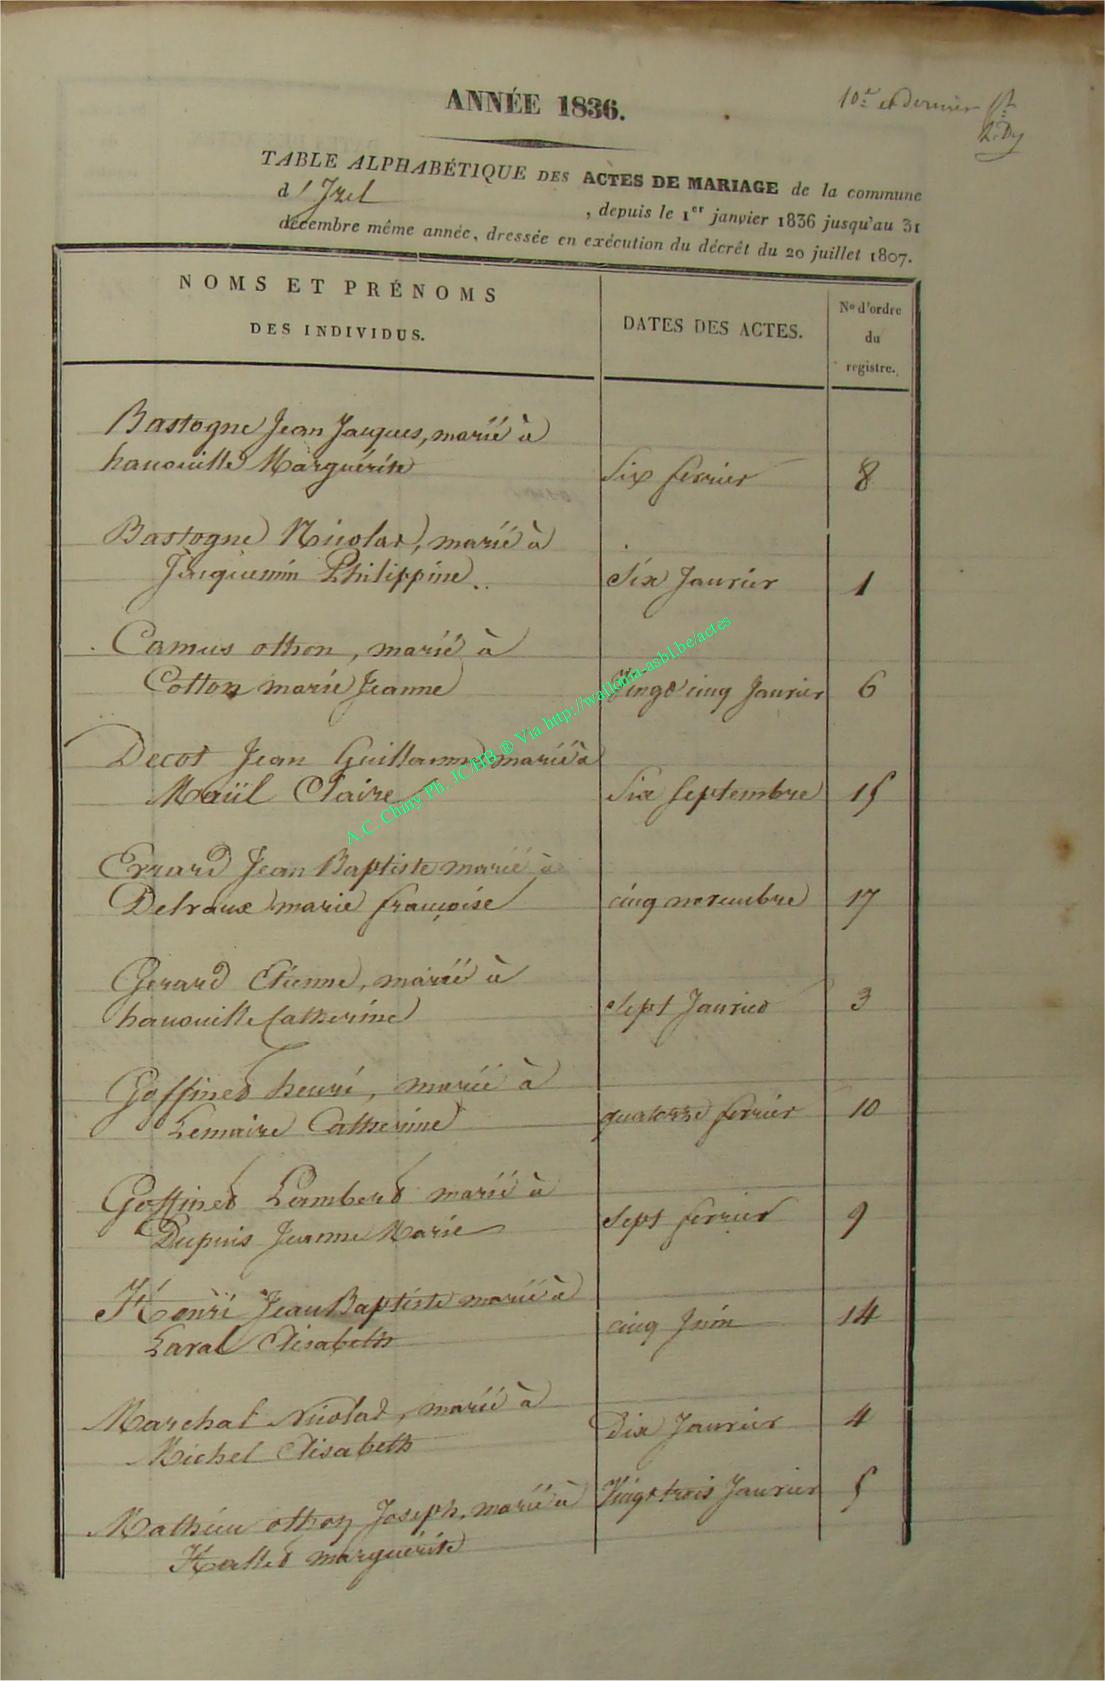 ANNÉE 1836.
10e et dernier ft
TABLE ALPHABÉTIQUE DES ACTES DE MARIAGE de la commune
d'Izel, depuis le 1er janvier 1836 jusqu'au 31
décembre même année, dressée en exécution du décrêt du 20 juillet 1807.
NOMS ET PRÉNOMS
DES INDIVIDUS.
DATES DES ACTES.
No d'ordre
du
registre.
Bastogne Jean Jacques, marié à
hanouille Marguérite six fevrier 8
Bastogne Nicolas, marié à
Jacquemin Philippine six Janvier 1
Camus othon, marié à
Cotton marie Jeanne Vingt cinq Janvier 6
Decot Jean Guillaume marié à
Maüil Claire six septembre 15
Errard Jean Baptiste marié à
Delvaux marie françoise cinq novembre 17
Gerard Etienne, marié à
hanouille Catherine sept Janvier 3
Goffinet henri, marié à
Lemaire Catherine quatorze fevrier 10
Goffinet Lambert marié à
Dupuis Jeanne Marie sept fevrier 9
Henri Jean Baptiste marié à
Laval Elisabeth cinq Juin 14
Marchal Nicolas, marié à
Michel Elisabeth Dix Janvier 4
Mathieu othon Joseph, marié à Vingt trois Janvier 5
Hallet marguérite
A.C. Chiny Ph. JC/HB ® Via http://wallonia-asbl.be/actes